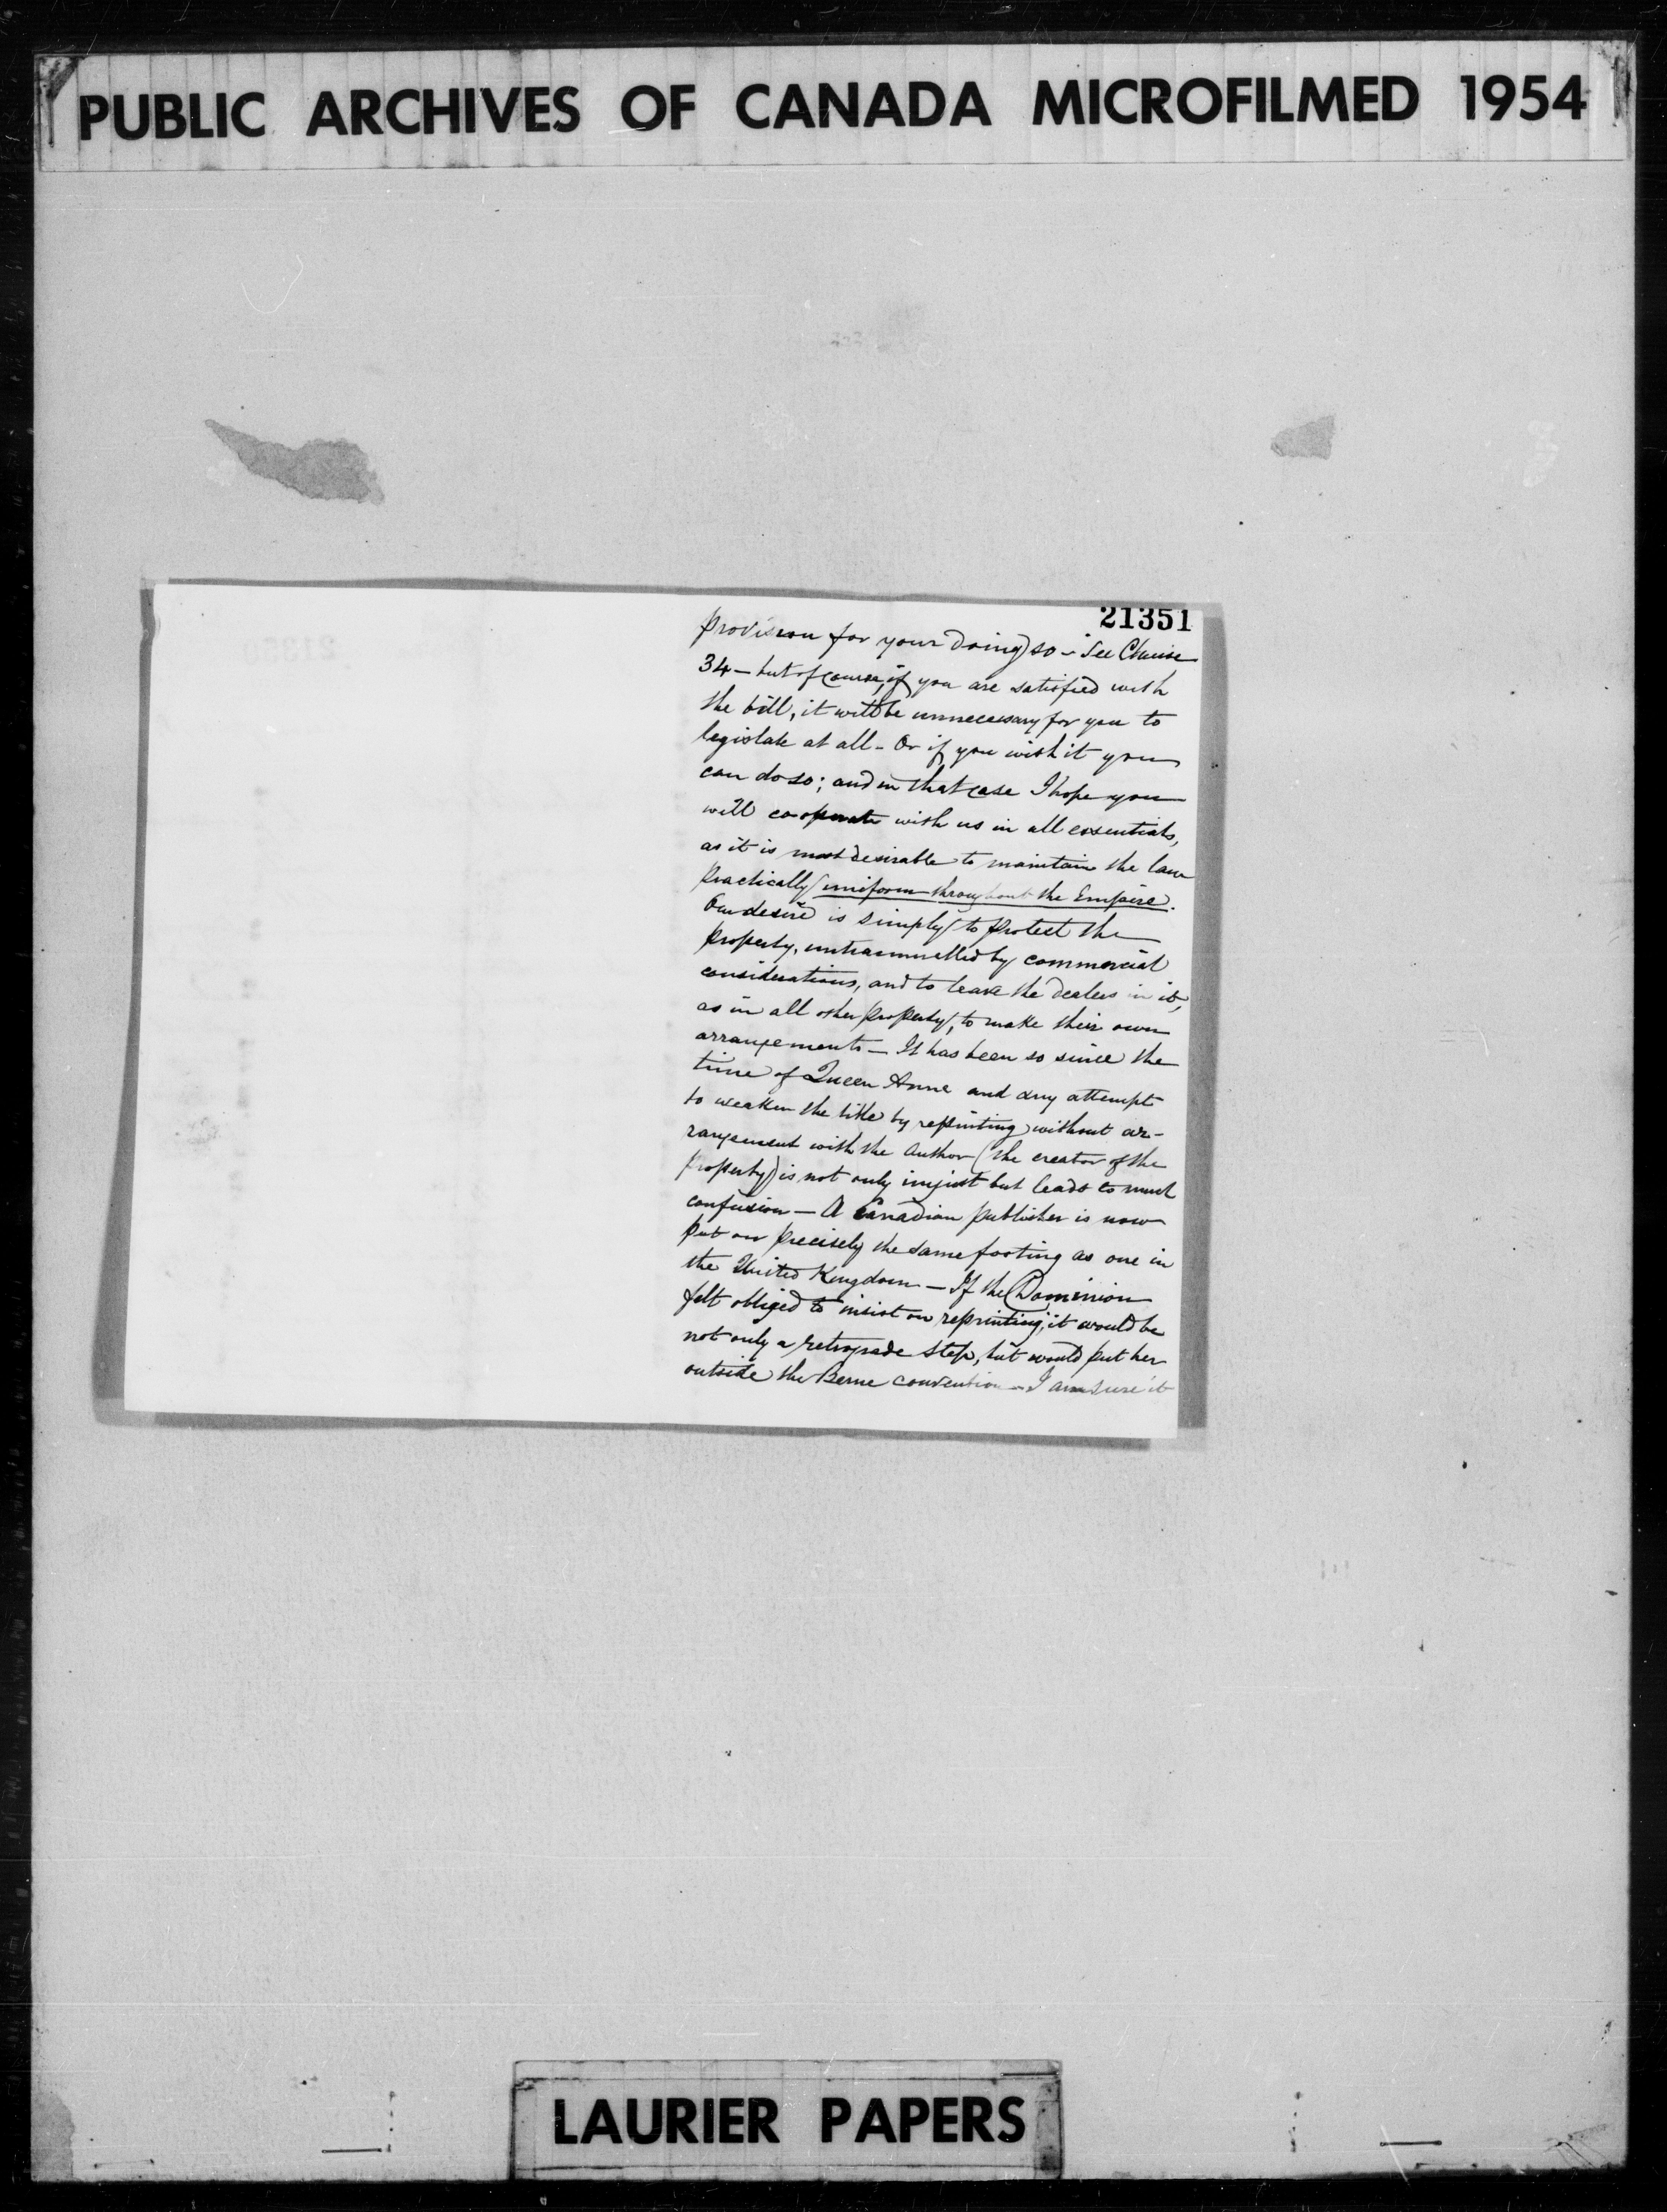 PUBLIC ARCHIVES OF CANADA MICROFILMED 1954
21351
provision for your doing so - See Clause
34 - but of course, if you are satisfied with
the bill, it will be unnecessary for you to
legislate at all - Or if you wish it you
can do so; and in that case I hope you
will co-operate with us in all essentials,
as it is most desirable to maintain the law
practically uniform throughout the Empire.
Our desire is simply to protect the
property, untrammelled by commercial
considerations, and to leave the dealers in it,
as in all other property, to make their own
arrangements - It has been so since the
time of Queen Anne and any attempt
to weaken the title by reprinting without ar-
rangement with the Author (the creator of the
property) is not only unjust but leads to much
confusion - A Canadian publisher is now
put on precisely the same footing as one in
the United Kingdom - If the Dominion
felt obliged to insist on reprinting, it would be
not only a retrograde step, but would put her
outside the Berne convention - I am sure it
LAURIER PAPERS